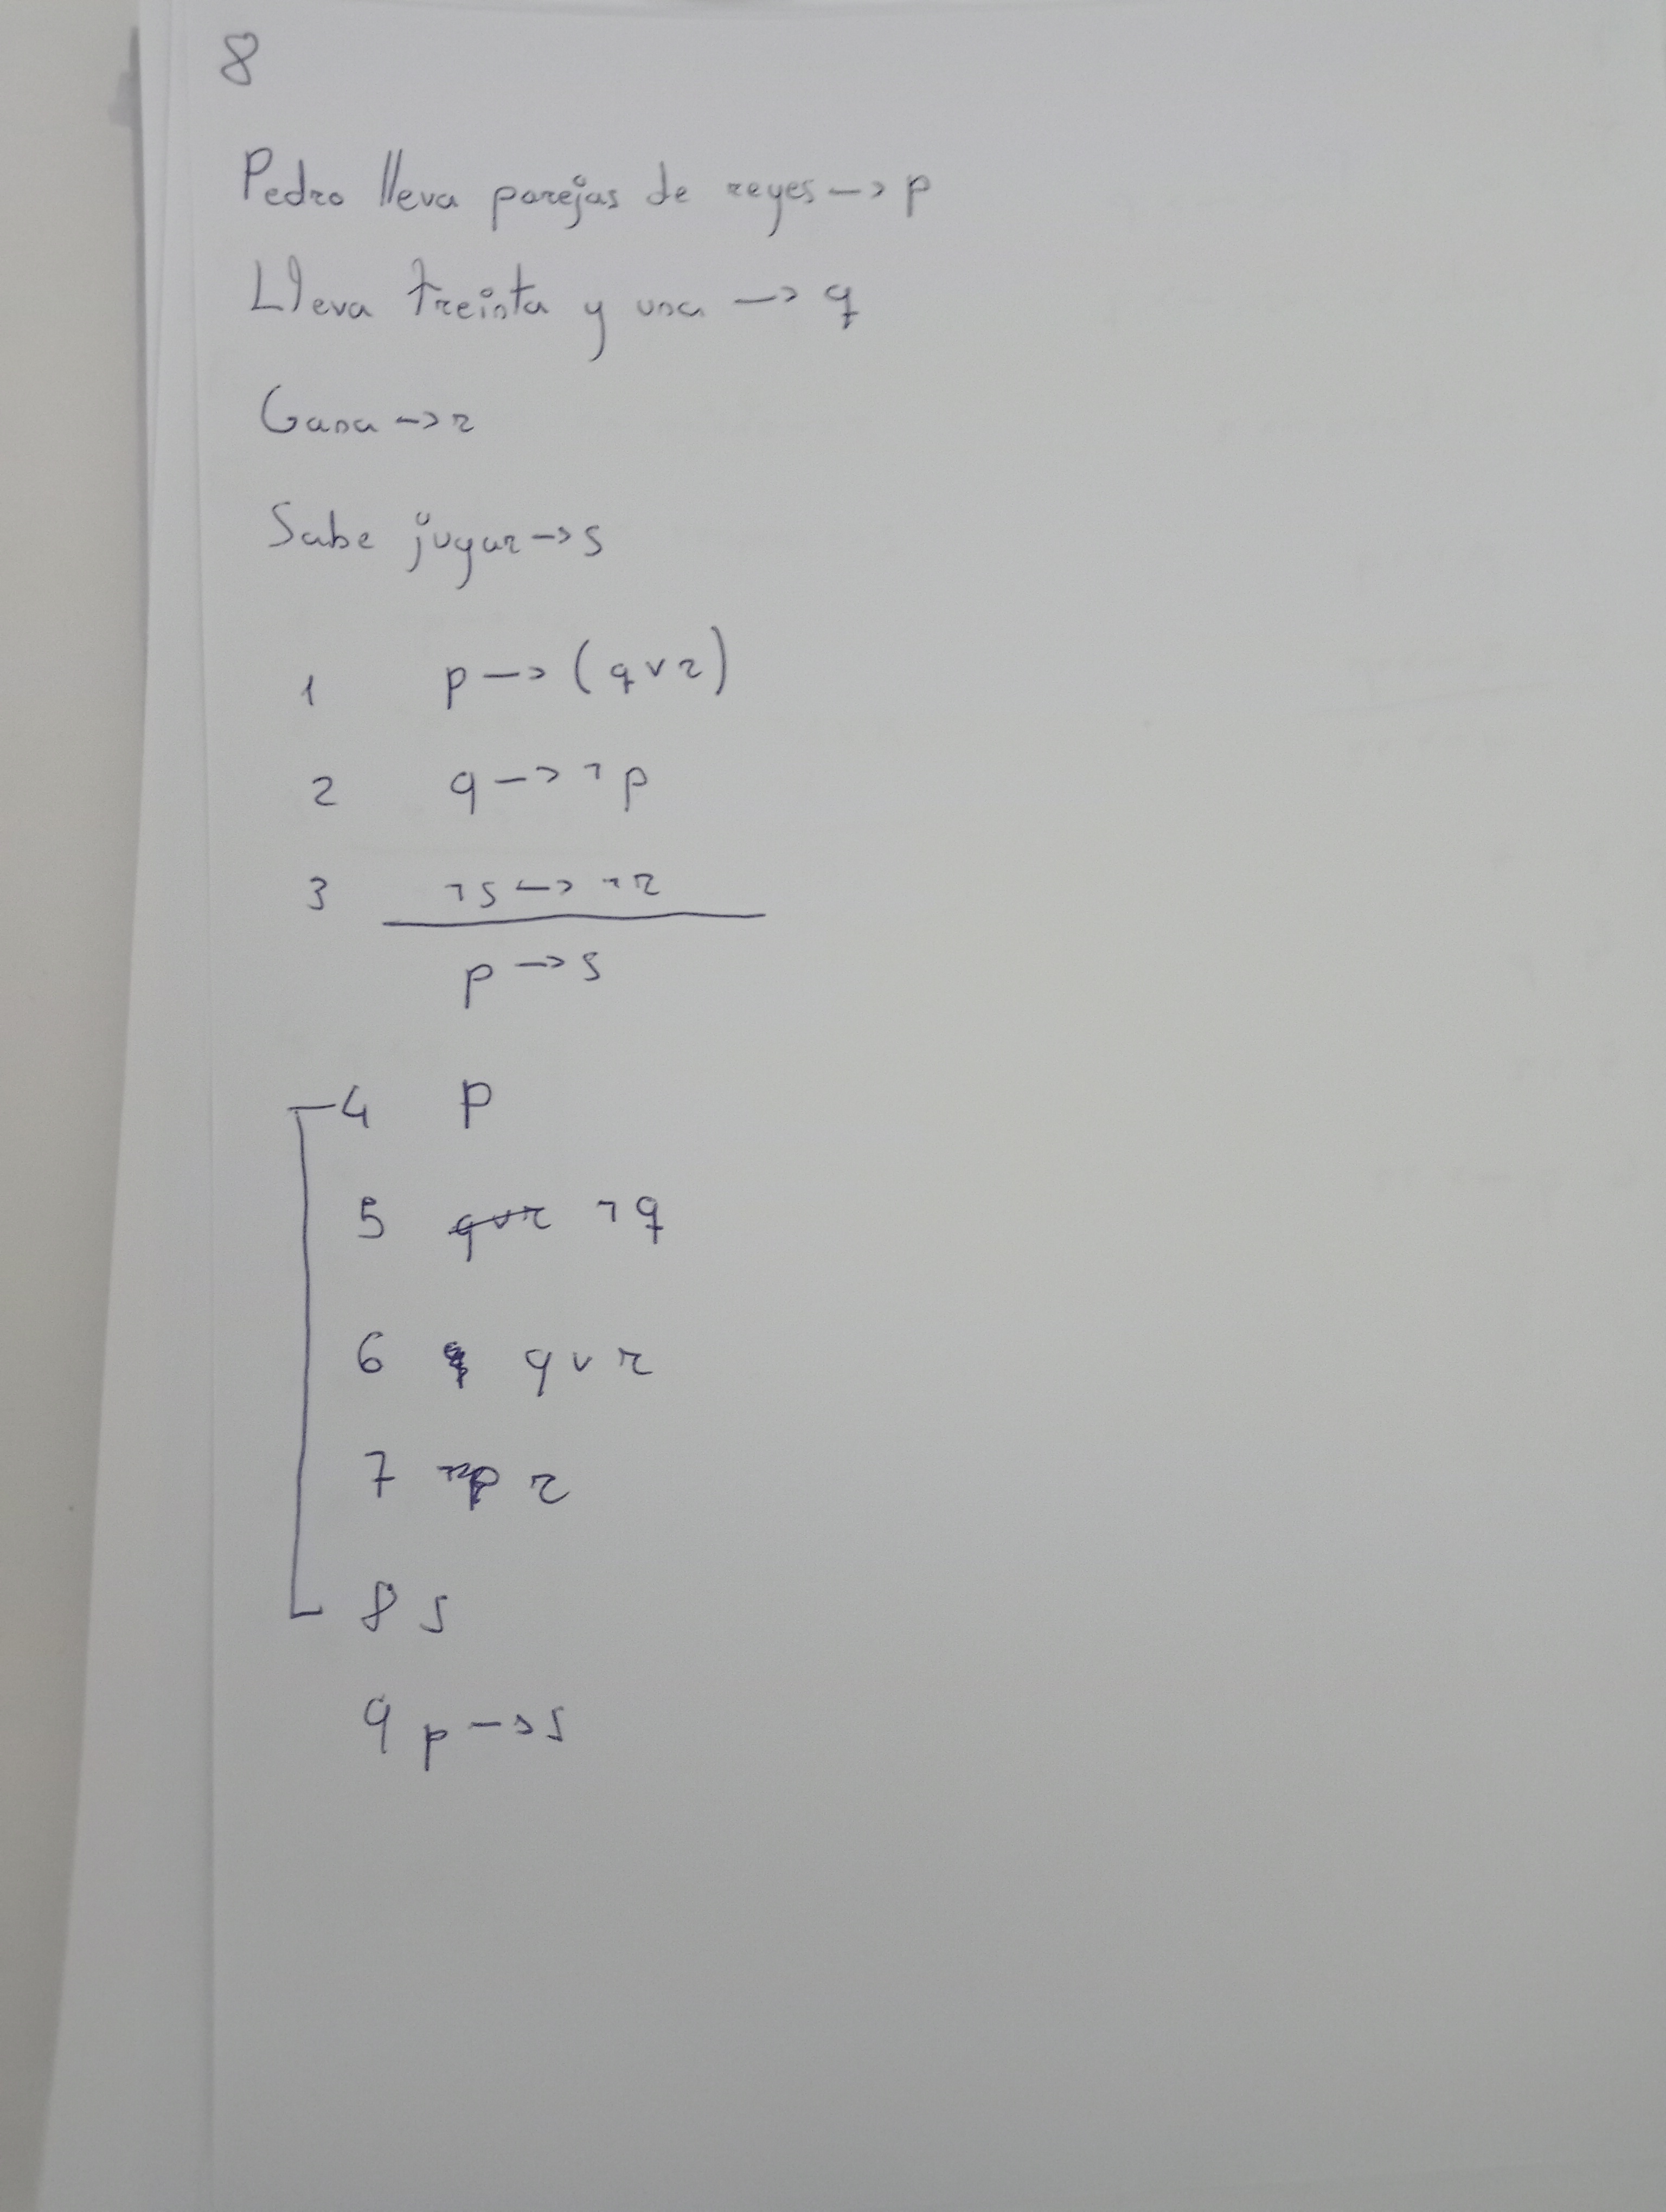 8
Pedro lleva parejas de reyes -> p
Lleva treinta y una -> q
Gana -> r
Sabe jugar -> s
1 p -> (q v r)
2 q -> ¬p
3 ¬s -> ¬r
p -> s
4 p
5 q v r ¬q
6 q v r
7 r
8 s
9 p -> s